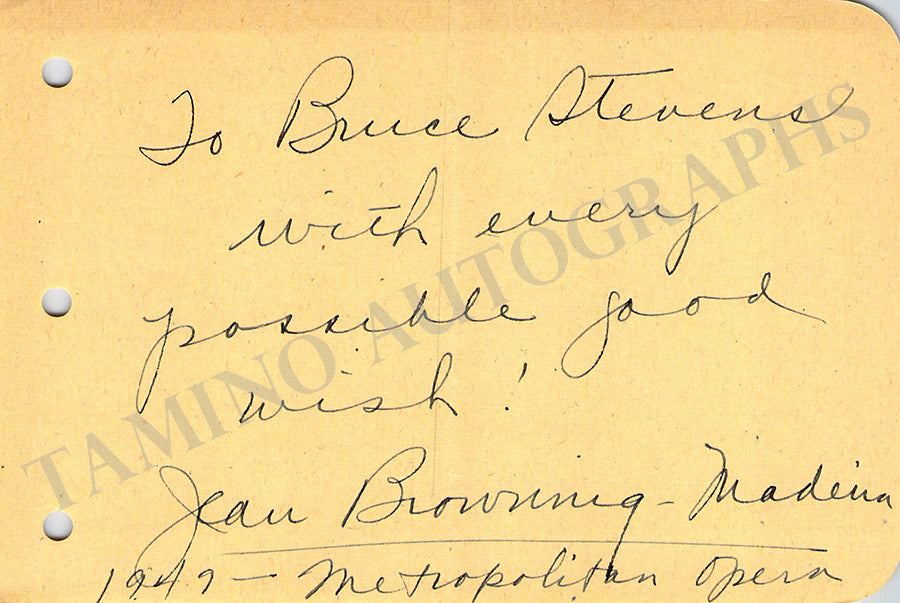 To Bruce Stevens
with every
possible good
wish!
Jean Browning-Madeira
1949 - Metropolitan Opera
TAMINO AUTOGRAPHS